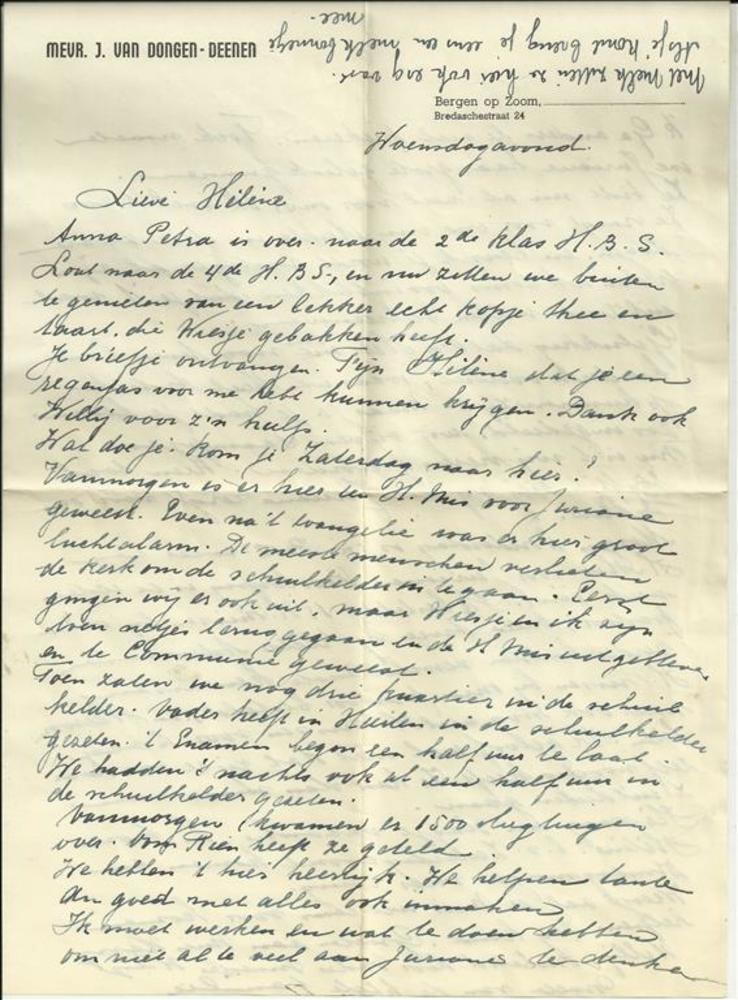 MEVR. J. VAN DONGEN-DEENEN
Met melk zitten ze hier ook erg vast.
Als je komt breng je eens en melkbonnetje
mee.
Bergen op Zoom,
Bredaschestraat 24
Woensdagavond.
Lieve Hélène
Anna Petra is over. naar de 2de klas H.B.S.
Loul naar de 4de H.BS., en nu zitten we buiten
te genieten van een lekker echt kopje thee en
taart, die Wiesje gebakken heeft.
Je briefje ontvangen. Fijn Hélène dat je een
regenjas voor me hebt kunnen krijgen. Dank ook
Willij voor z'n hulp.
Wat doe je. Kom je Zaterdag naar hier?
Vanmorgen is er hier en H. Mis voor Jurriane
geweest. Even na 't Evangelie was er hier groot
luchtalarm. De meeste menschen verlieten
de kerk om de schuilkelder in te gaan. Eerst
gingen wij er ook uit, maar Wiesje en ik zijn
toen netjes terug gegaan en de H Mis uitgebleven
en te Communie geweest.
Toen zaten we nog drie kwartier in de schuil
kelder. Vader heeft in in de schuilkelder
gezeten. 't Examen begon een half uur te laat.
We hadden 's nachts ook al een half uur in
de schuilkelder gezeten.
Vanmorgen kwamen er 1500 vliegtuigen
over. Oom Rien heeft ze geteld.
We hebben 't hier heerlijk. We helpen tante
An goed met alles ook inmaken
Ik moet werken en wat te doen hebben
om niet al te veel aan te denken